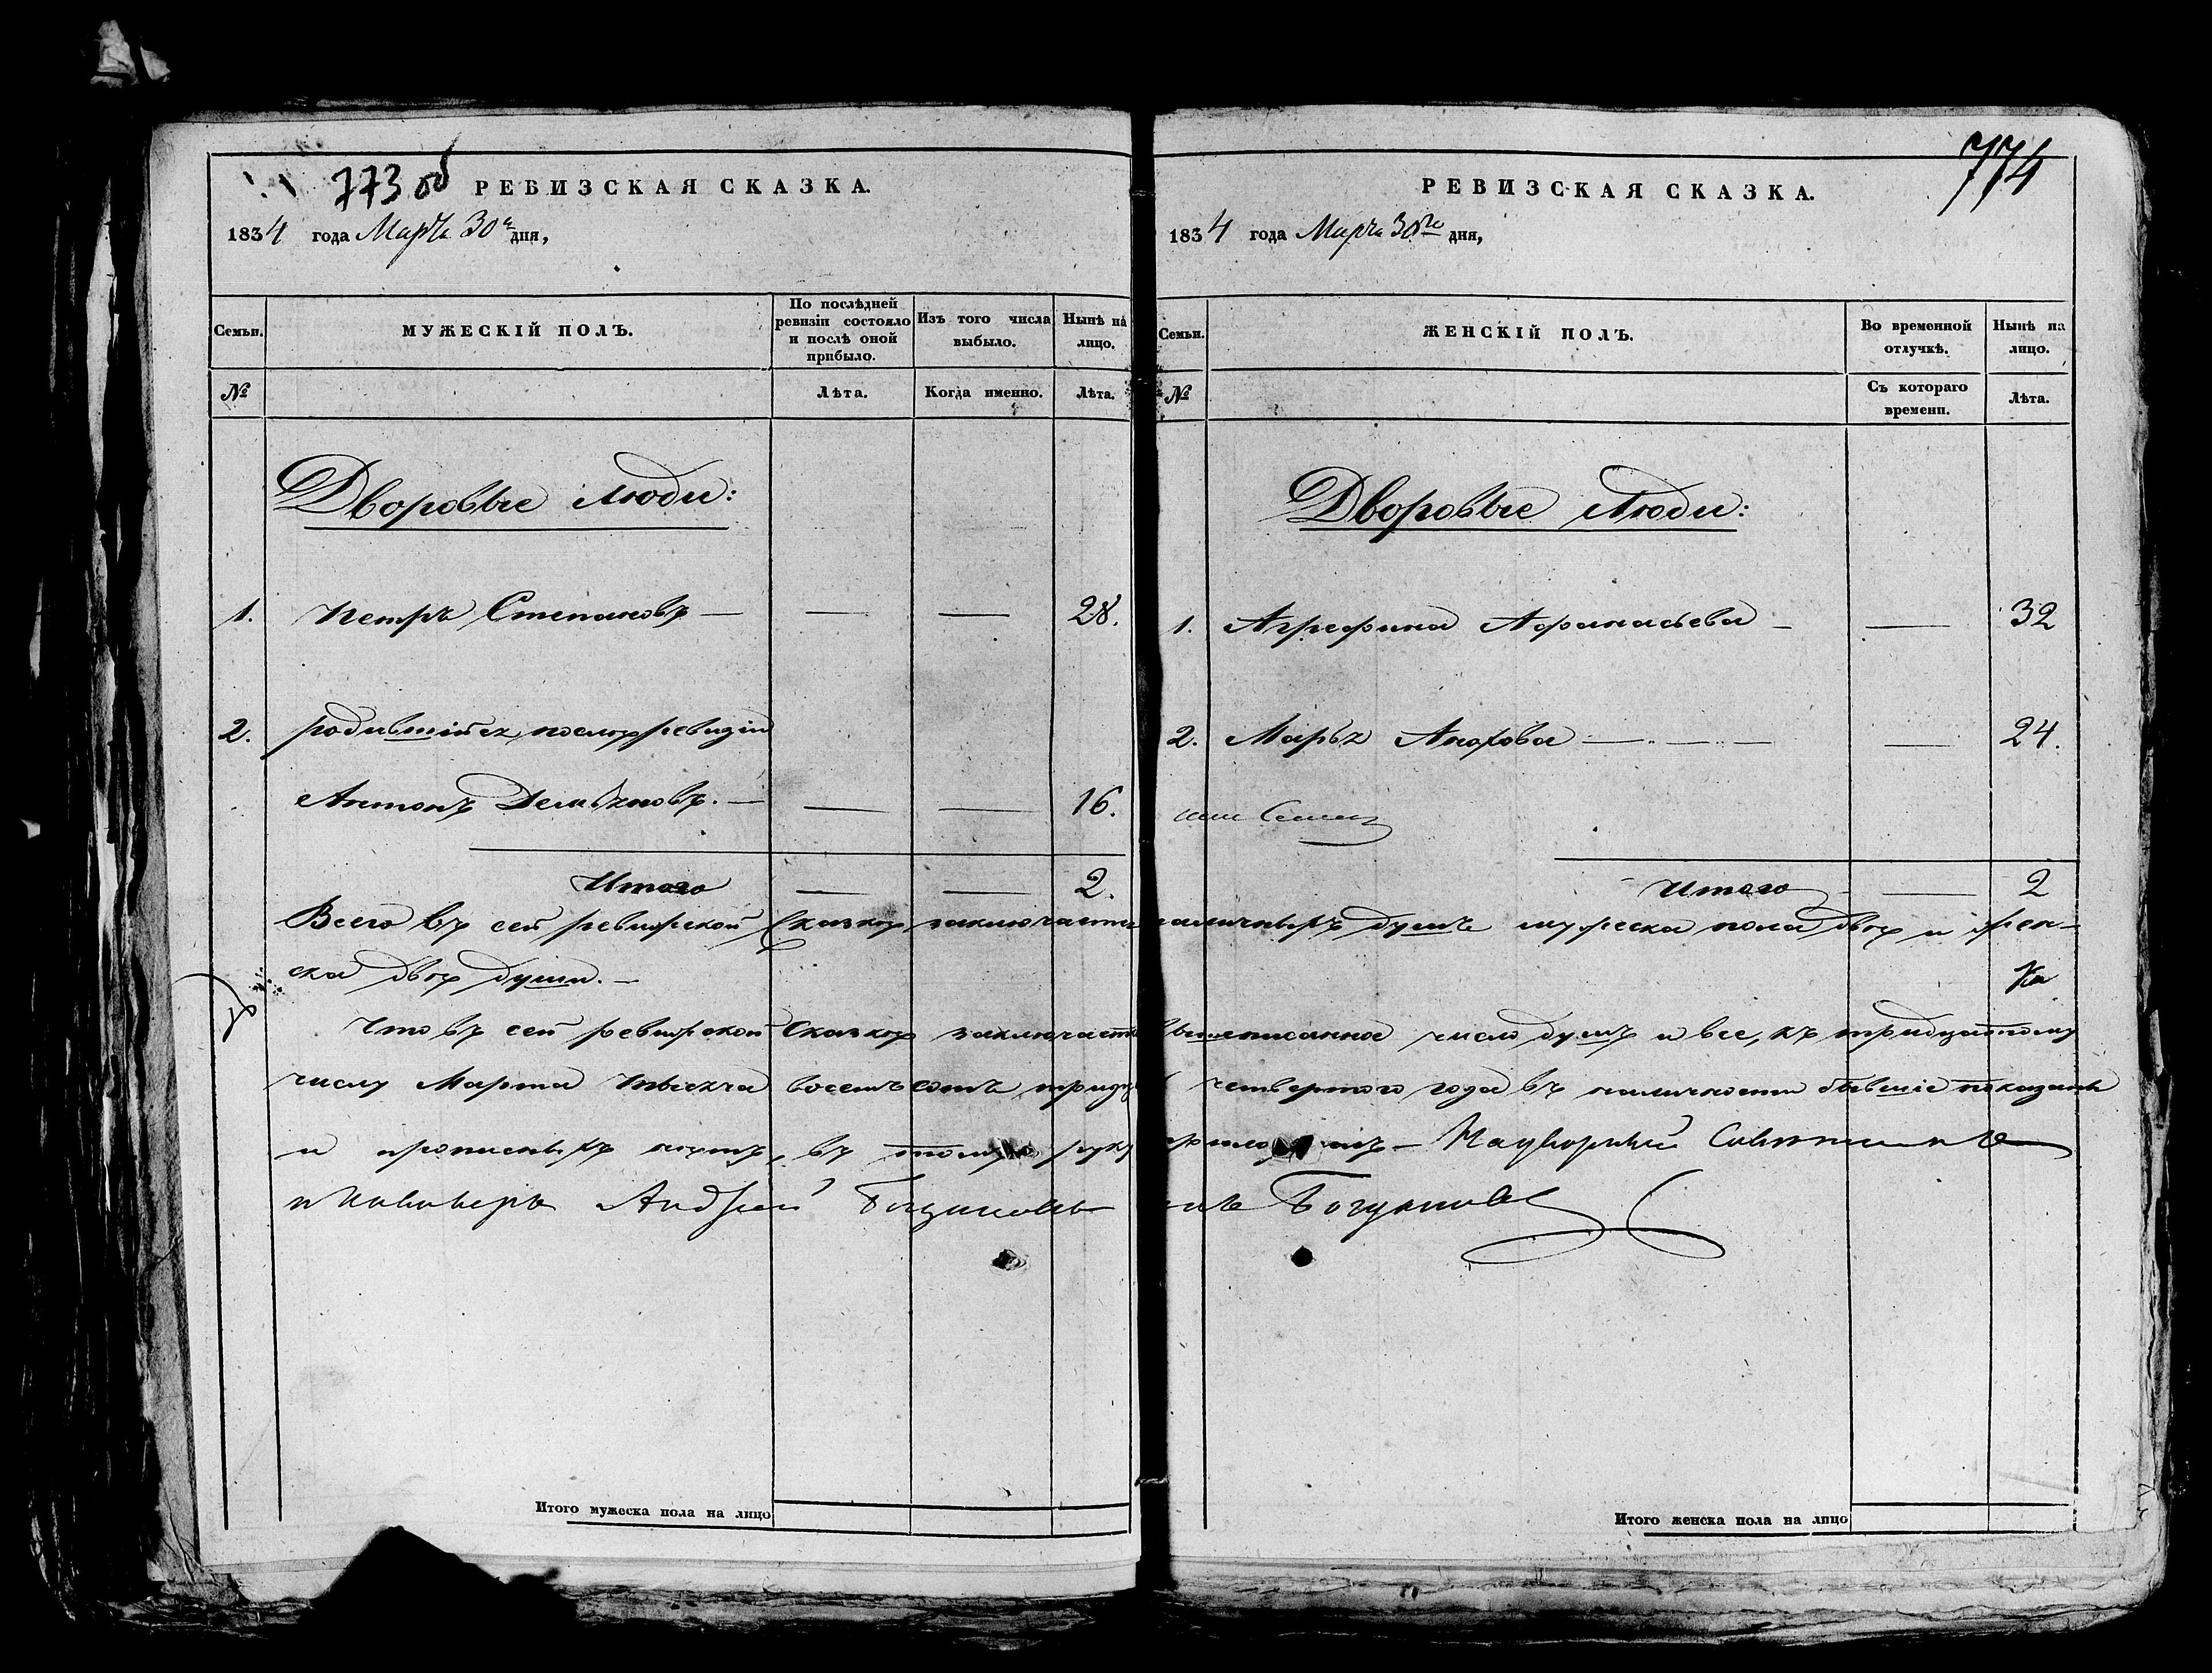 773 об
РЕВИЗСКАЯ СКАЗКА.
1834 года Марта 30го дня,
Семьи.
МУЖЕСКІЙ ПОЛЪ.
По послѣдней ревизіи состояло и послѣ оной прибыло.
Изъ того числа выбыло.
Нынѣ на лицо.
№
Лѣта.
Когда именно.
Лѣта.
Дворовые люди:
1. Петръ Степановъ — — — 28.
2. родившійся послѣ ревизіи
Антонъ Демьяновъ. — — — 16.
Итого — — 2.
Всего въ сей ревизской Сказкѣ заключаетъ
ска двѣ души. —
Что въ сей ревизской Сказкѣ заключает
числу Марта тысяча восемь сотъ тридца
и прописныхъ нѣтъ, въ томъ руку
и Кавалеръ Андрей
Итого мужеска пола на лицо
774
РЕВИЗСКАЯ СКАЗКА.
1834 года Марта 30го дня,
Семьи.
ЖЕНСКІЙ ПОЛЪ.
Во временной отлучкѣ.
Нынѣ на лицо.
№
Съ котораго времени.
Лѣта.
Дворовые Люди:
1. Агрефина Афанасьева — — 32
2. Марья — — 24.
Итого — 2
наличныхъ душъ мужеска пола двѣ и жен-
вышеписанное число душъ и все, къ тридцатому
четвертого года въ наличности бывшіе показаны
приложилъ — Надворный Советникъ
Итого женска пола на лицо